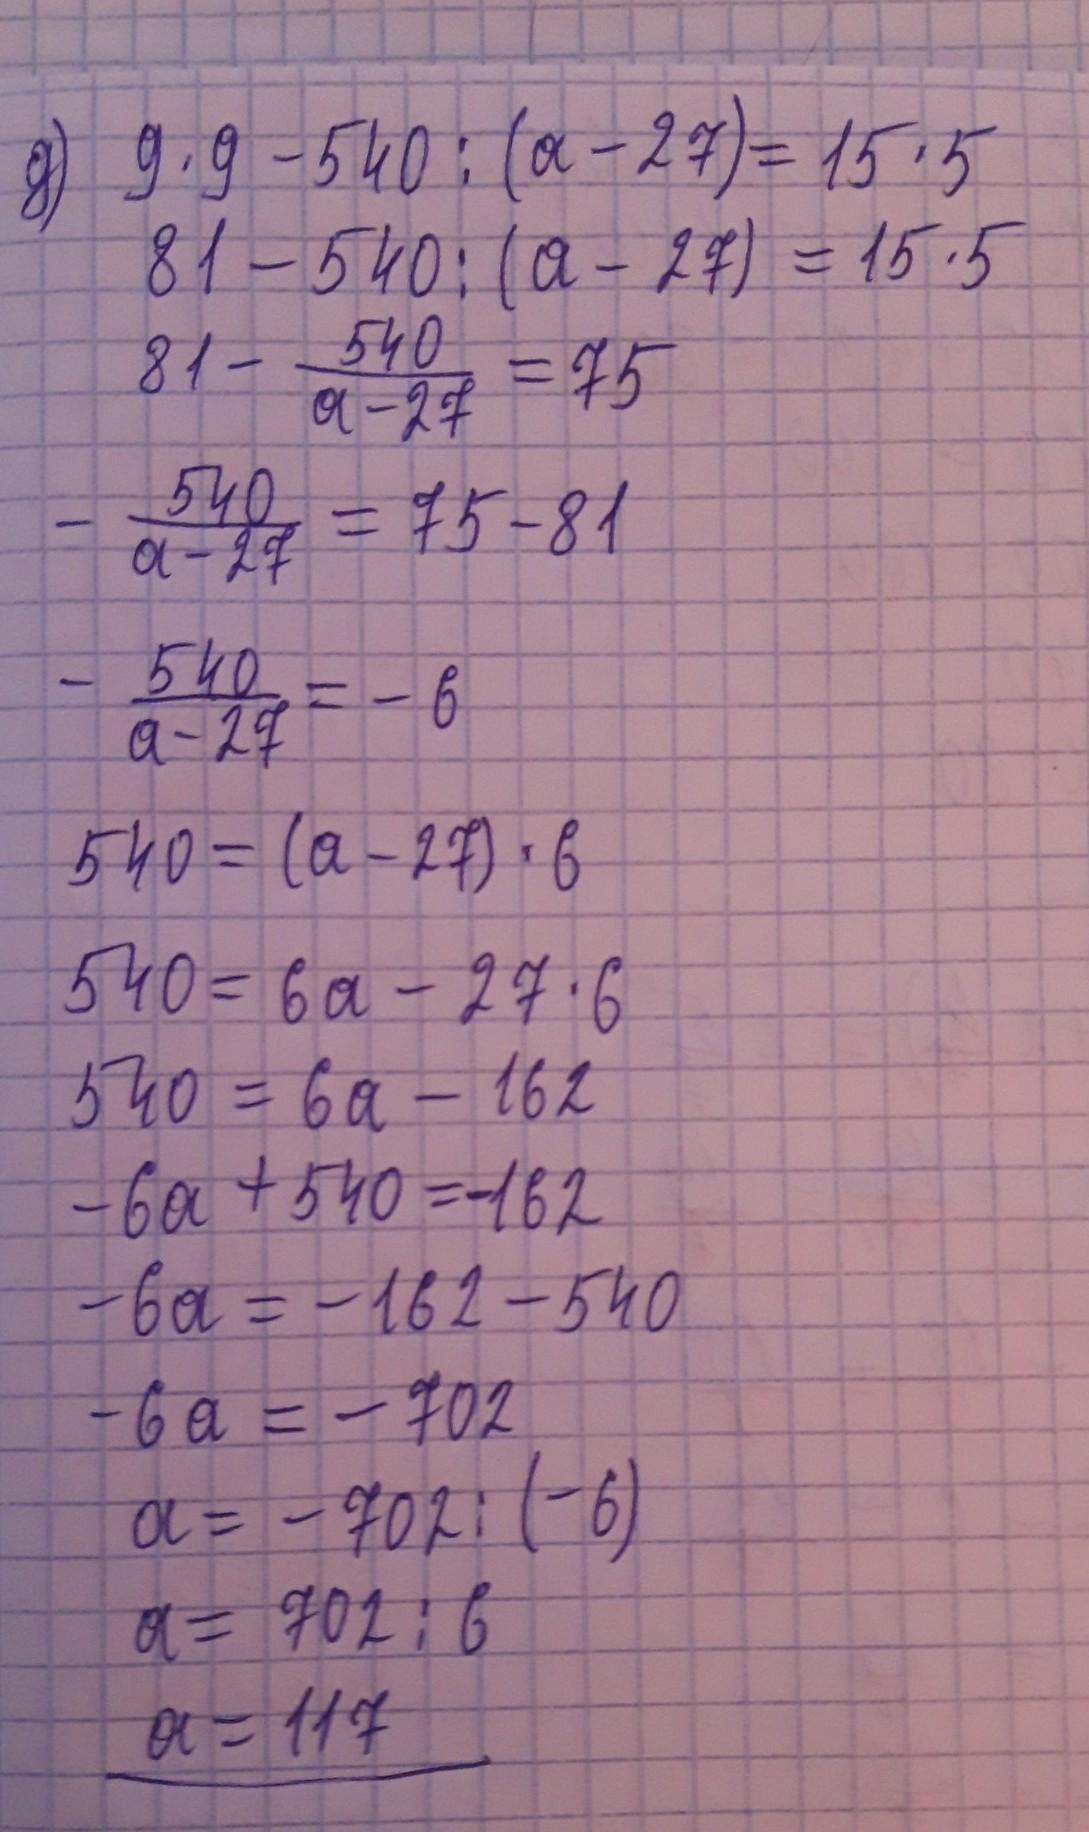 д) 9·9-540:(a-27)=15·5
81-540:(a-27)=15·5
81-\frac{540}{a-27}=75
-\frac{540}{a-27}=75-81
-\frac{540}{a-27}=-6
540=(a-27)·6
540=6a-27·6
540=6a-162
-6a+540=-162
-6a=-162-540
-6a=-702
a=-702:(-6)
a=702:6
a=117